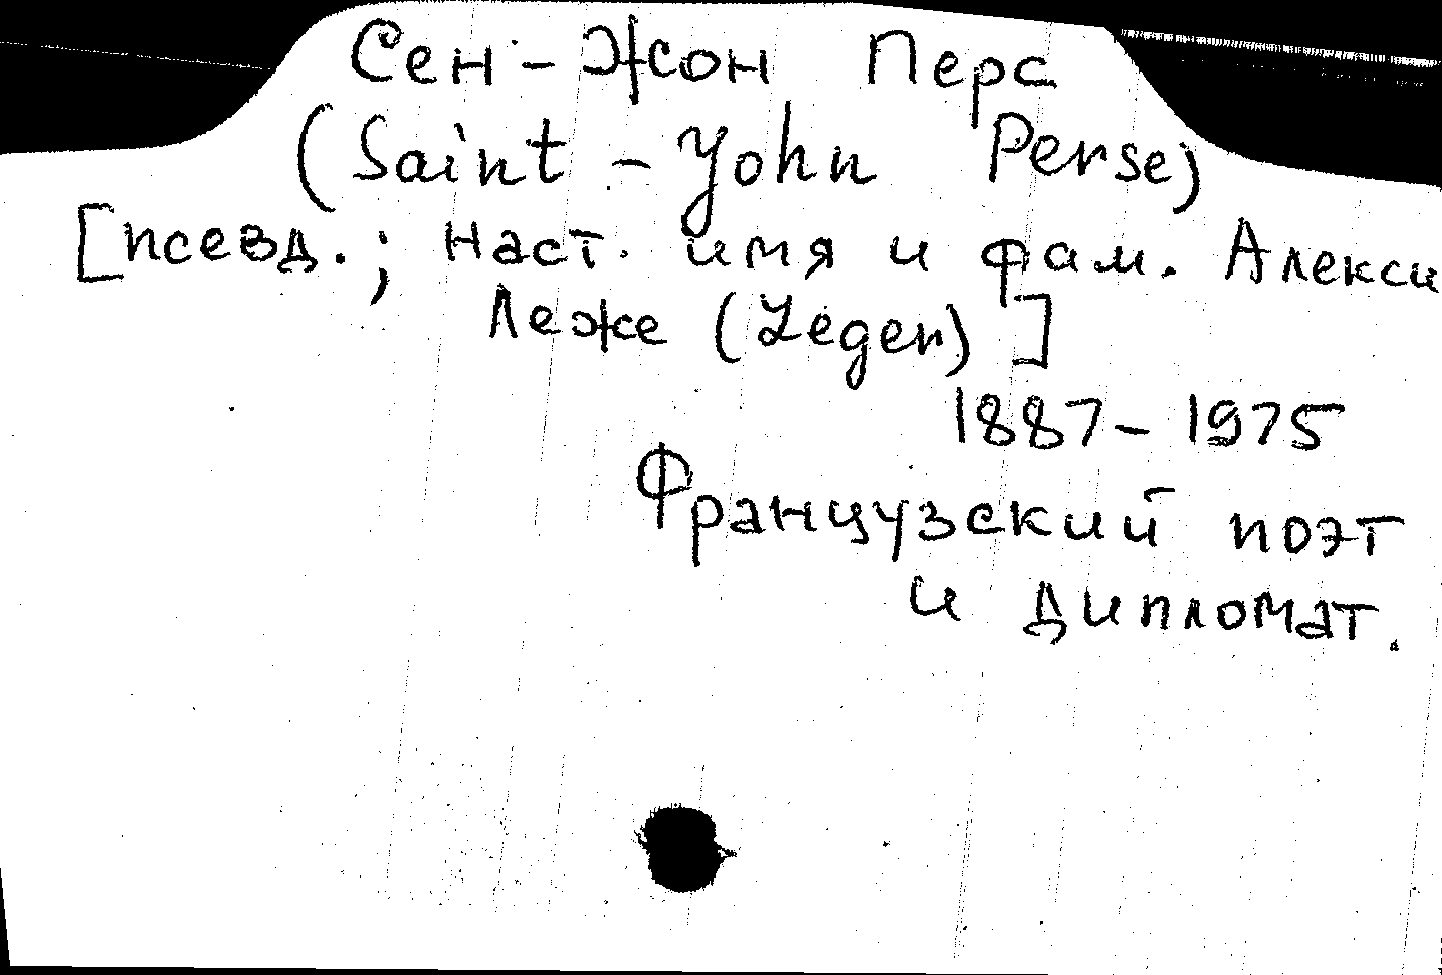 Сен-Жон Перс
(Saint-John Perse)
[псевд.; наст. имя и фам. Алекси
Леже (Léger)]
1887-1975
Французский поэт
и дипломат.